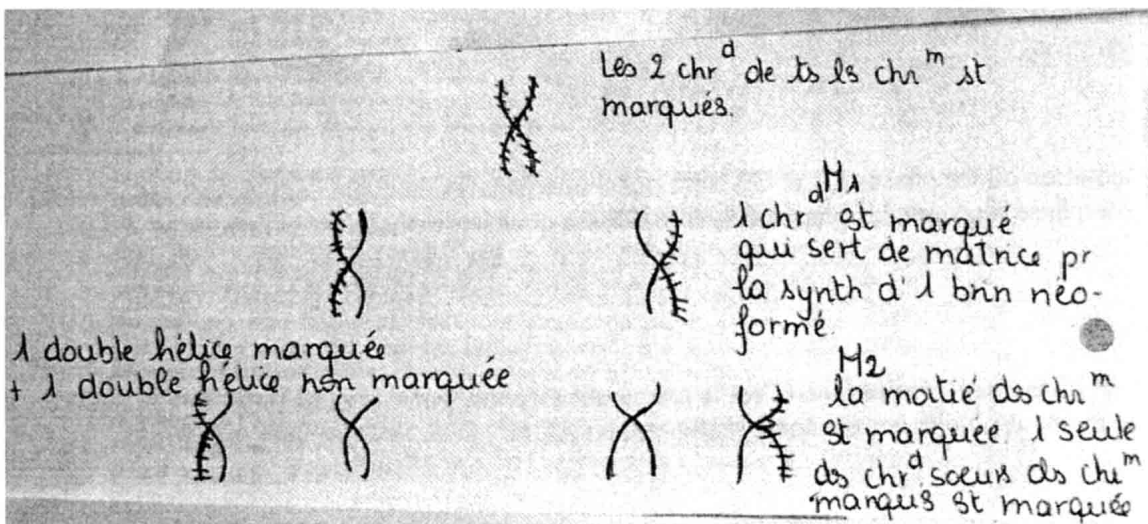 Les 2 chr^d de ts ls chr^m st
marqués.
M1
1 chr^d st marqué
qui sert de matrice pr
la synth d'1 brin néo-
formé.
1 double hélice marquée
+ 1 double hélice non marquée
M2
la moitié ds chr^m
st marquée 1 seule
ds chr^d soeurs ds chr^m
marqués st marquée